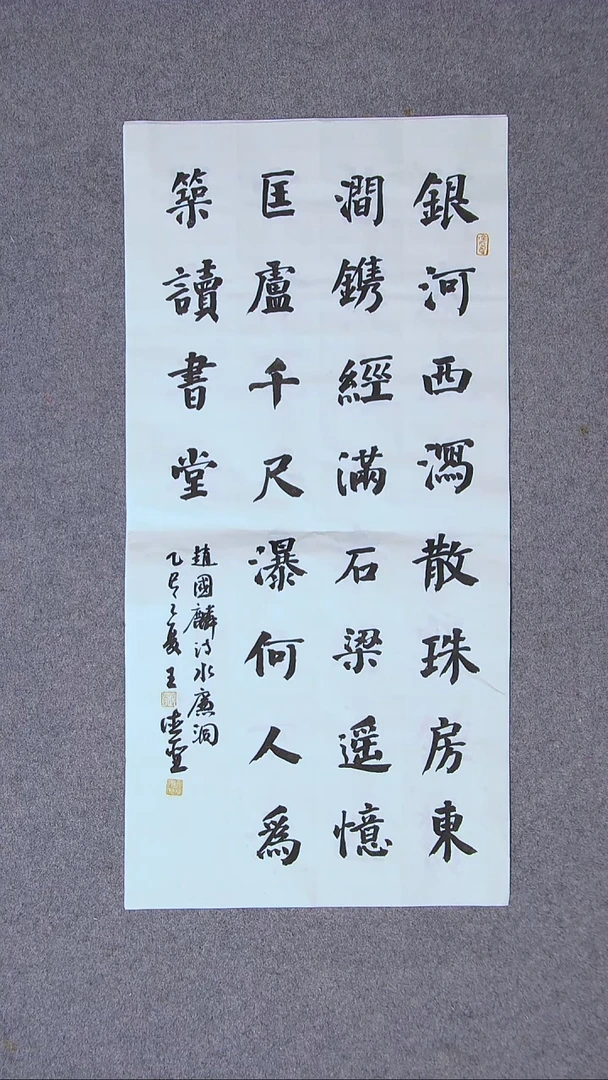 銀河西瀉散珠房東
澗鐫經滿石梁遥憶
匡盧千尺瀑何人爲
築讀書堂
趙國麟诗水廉洞
乙巳之夏王德聖